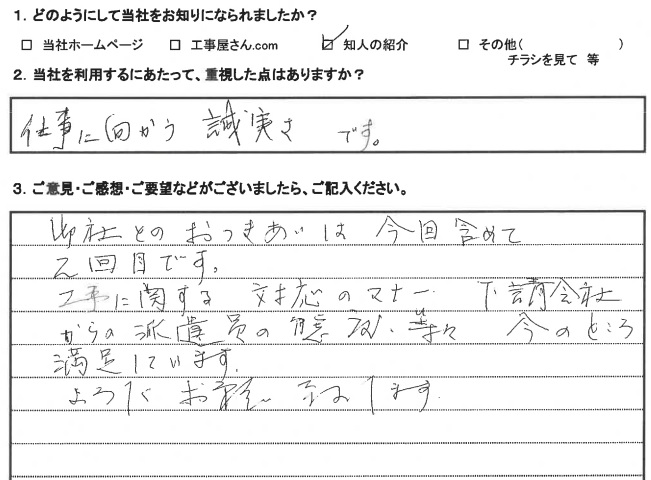 1. どのようにして当社をお知りになられましたか？
□ 当社ホームページ □ 工事屋さん.com ☑ 知人の紹介 □ その他( )
チラシを見て 等
2. 当社を利用するにあたって、重視した点はありますか？
仕事に向かう 誠実さ です。
3. ご意見・ご感想・ご要望などがございましたら、ご記入ください。
御社とのおつきあいは 今回含めて
2回目です。
工事に関する 対応のマナー 下請会社
からの派遣員の態度 等々 今のところ
満足しています。
よろしくお願い致します。